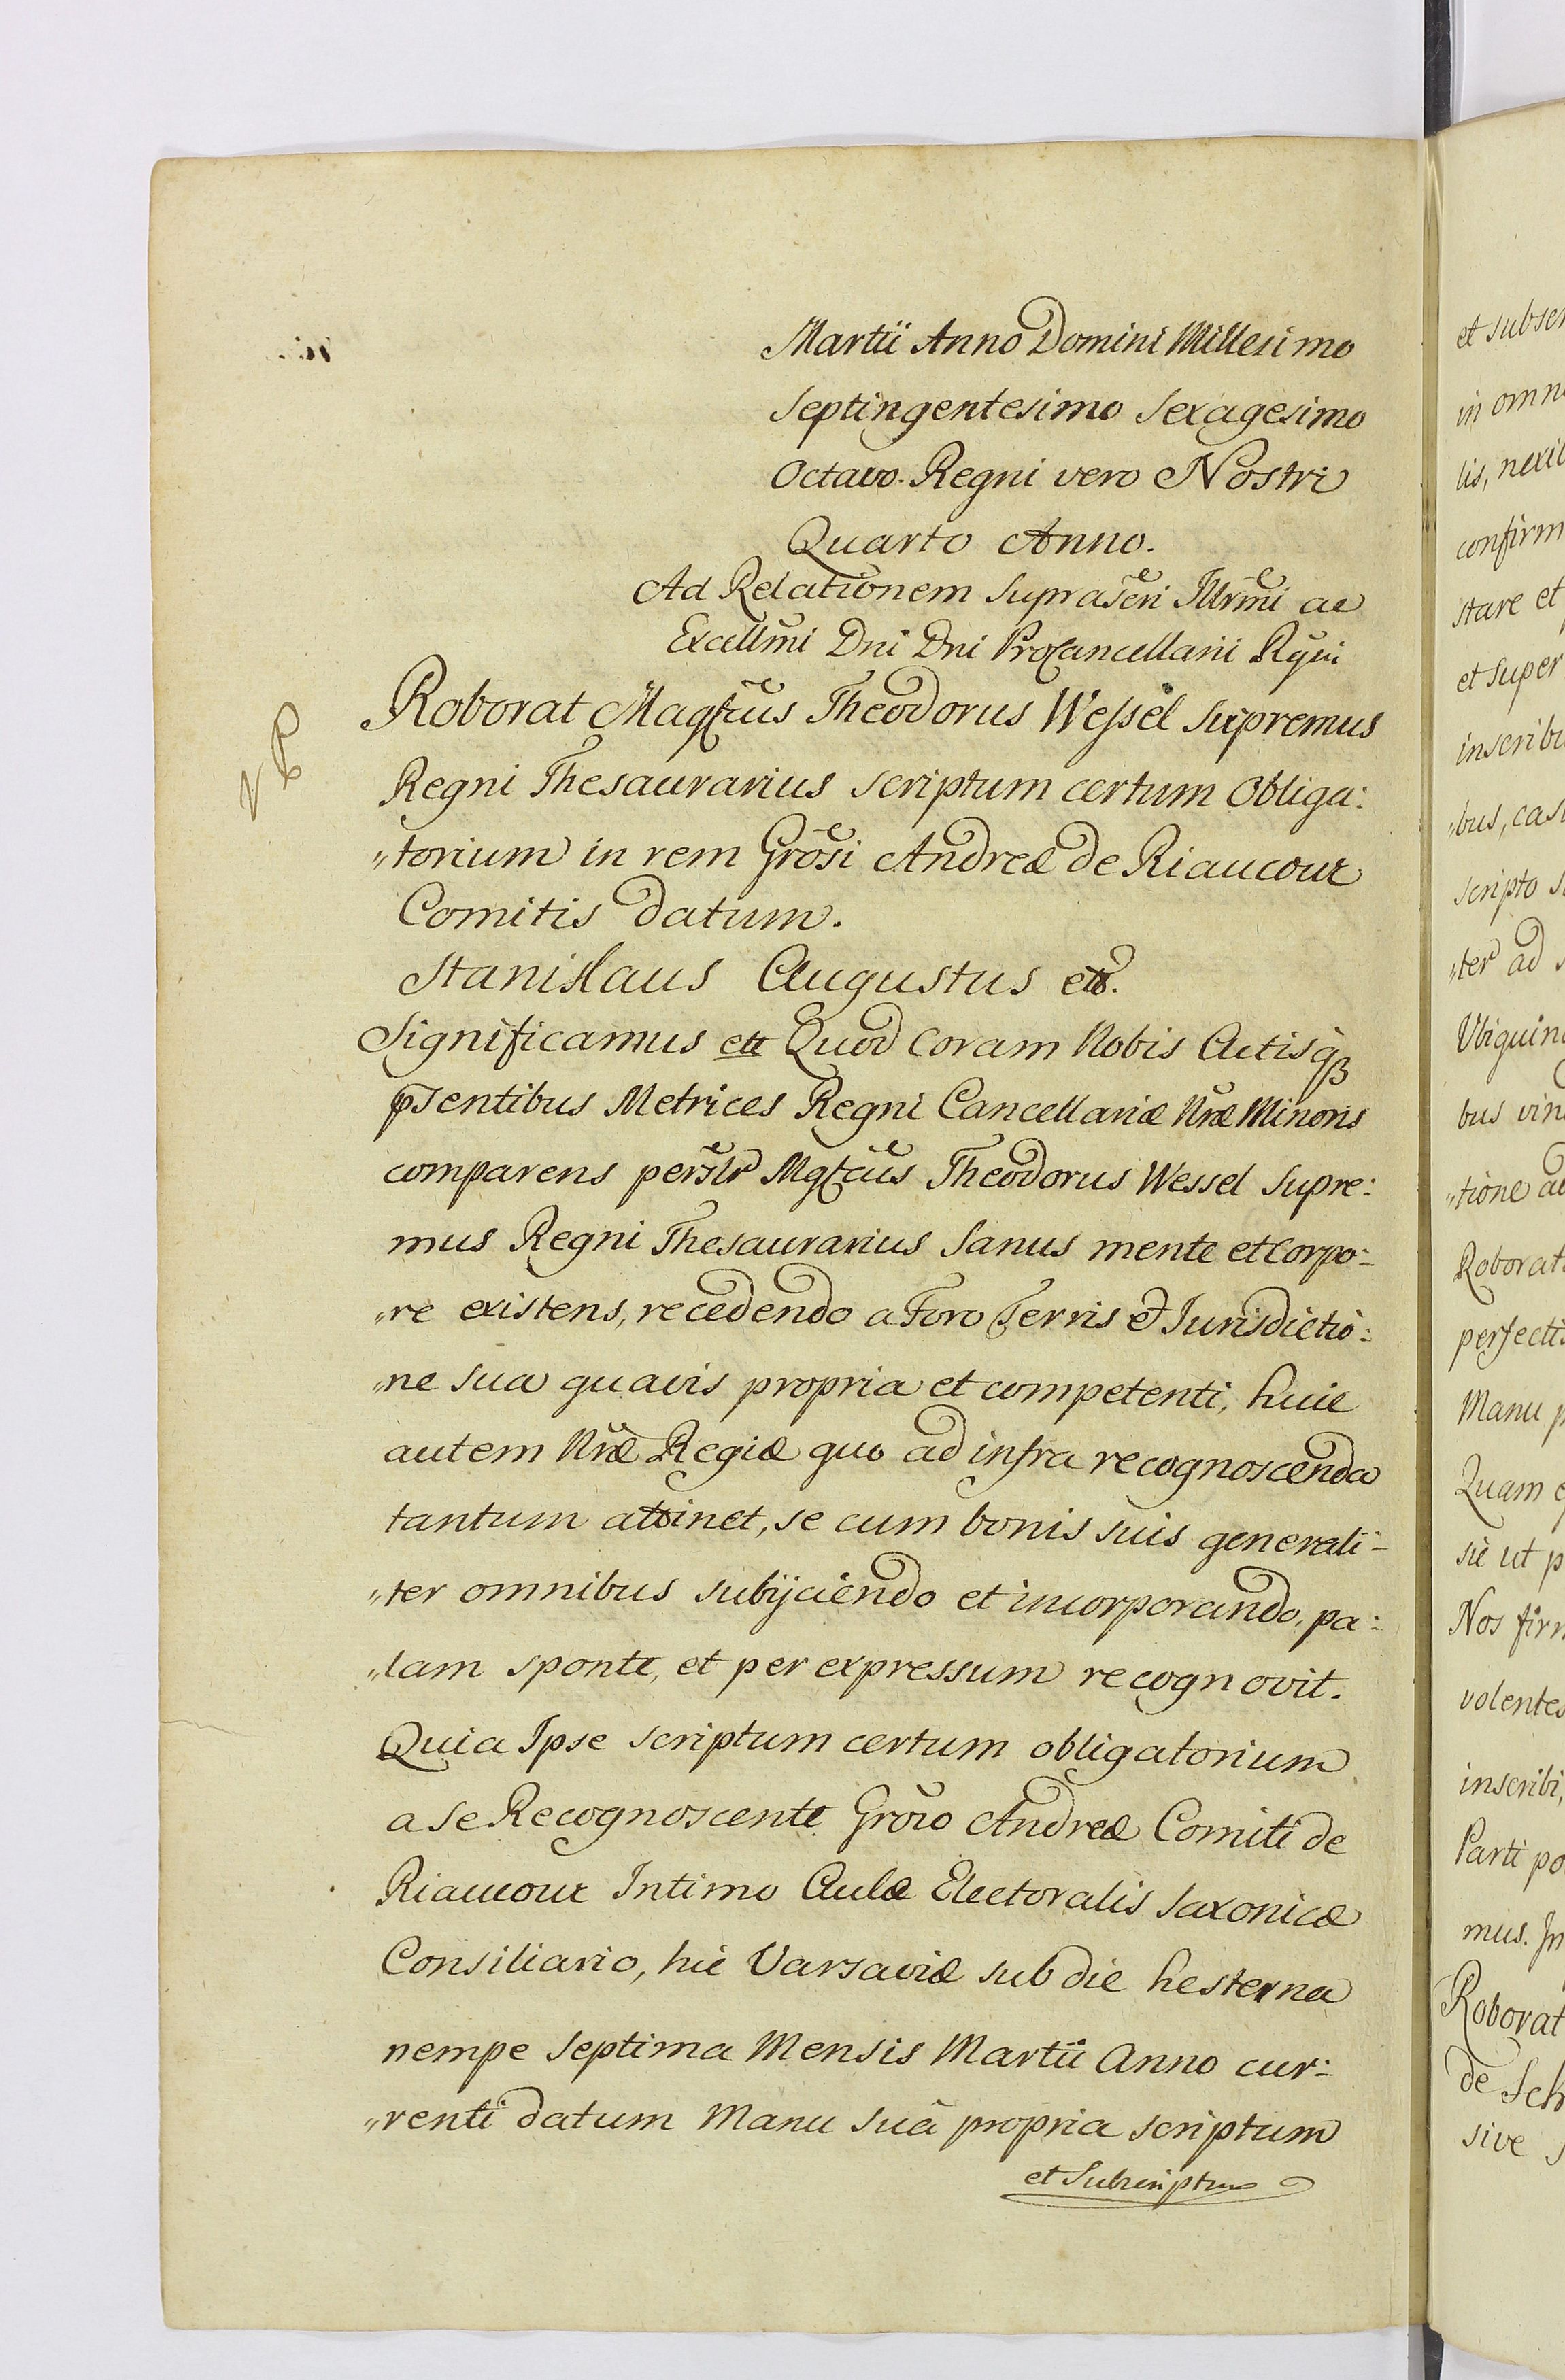 Martii Anno Domini Millesimo
Septingentesimo Sexagesimo
Octavo. Regni vero Nostri
Quarto Anno.
Ad Relationem Suprascri Illrmi ac
Excellmi Dni Dni ProCancellarii Rgni
Roborat Magfcus Theodorus Wessel Supremus
Regni Thesaurarius scriptum certum Obliga:
„torium in rem Grosi Andreæ de Riaucour
Comitis datum.
Stanislaus Augustus etc.
Significamus ett Quod Coram Nobis Actisq3
p̄sentibus Metrices Regni Cancellariæ Nræ Minoris
comparens persnlr Mgfcus Theodorus Wessel Supre:
mus Regni Thesaurarius Sanus mente et Corpo:
„re existens, recedendo a Foro Terris et Jurisdictio:
„ne sua quavis propria et competenti, huic
autem Nræ Regiæ quo ad infra recognoscenda
tantum attinet, se cum bonis suis generali:
„ter omnibus subijciendo et incorporando, pa:
„lam sponte, et per expressum recognovit.
Quia Ipse scriptum certum obligatorium
a se Recognoscente Groso Andreæ Comiti de
Riaucour Intimo Aulæ Electoralis Saxonicæ
Consiliario, hic Varsaviæ sub die hesterna
nempe Septima Mensis Martii Anno cur:
„renti datum Manu Suâ propria scriptum
et Subscriptum
et subscr
in omni
lis, nexi
confirm
stare et
et super
inscribi
„bus, cas
scripto s
„ter ad
Ubiquin
bus vin
„tione
Roborat
perfecti
Manu p
Quam
sic ut p
Nos firm
volentes
inscribi,
Parti po
mus. In
Roborat
de Sch
sive s